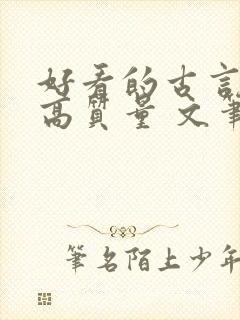 好看的古言
高質量 文筆
筆名陌上少年